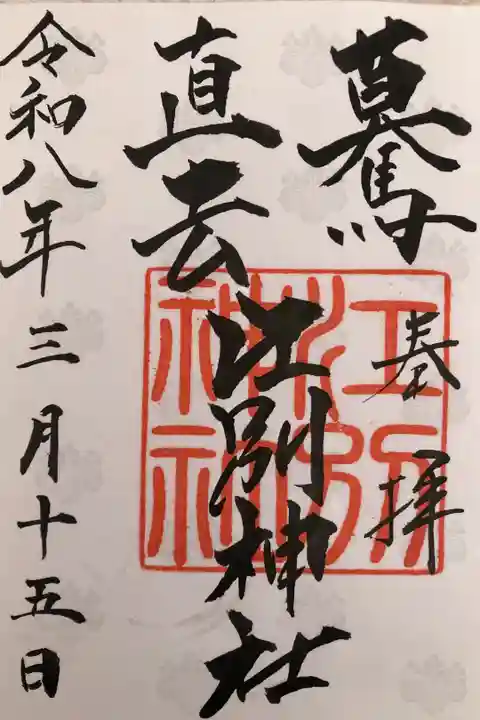 驀
直去
奉拝
江別神社
江別神社
令和八年三月十五日